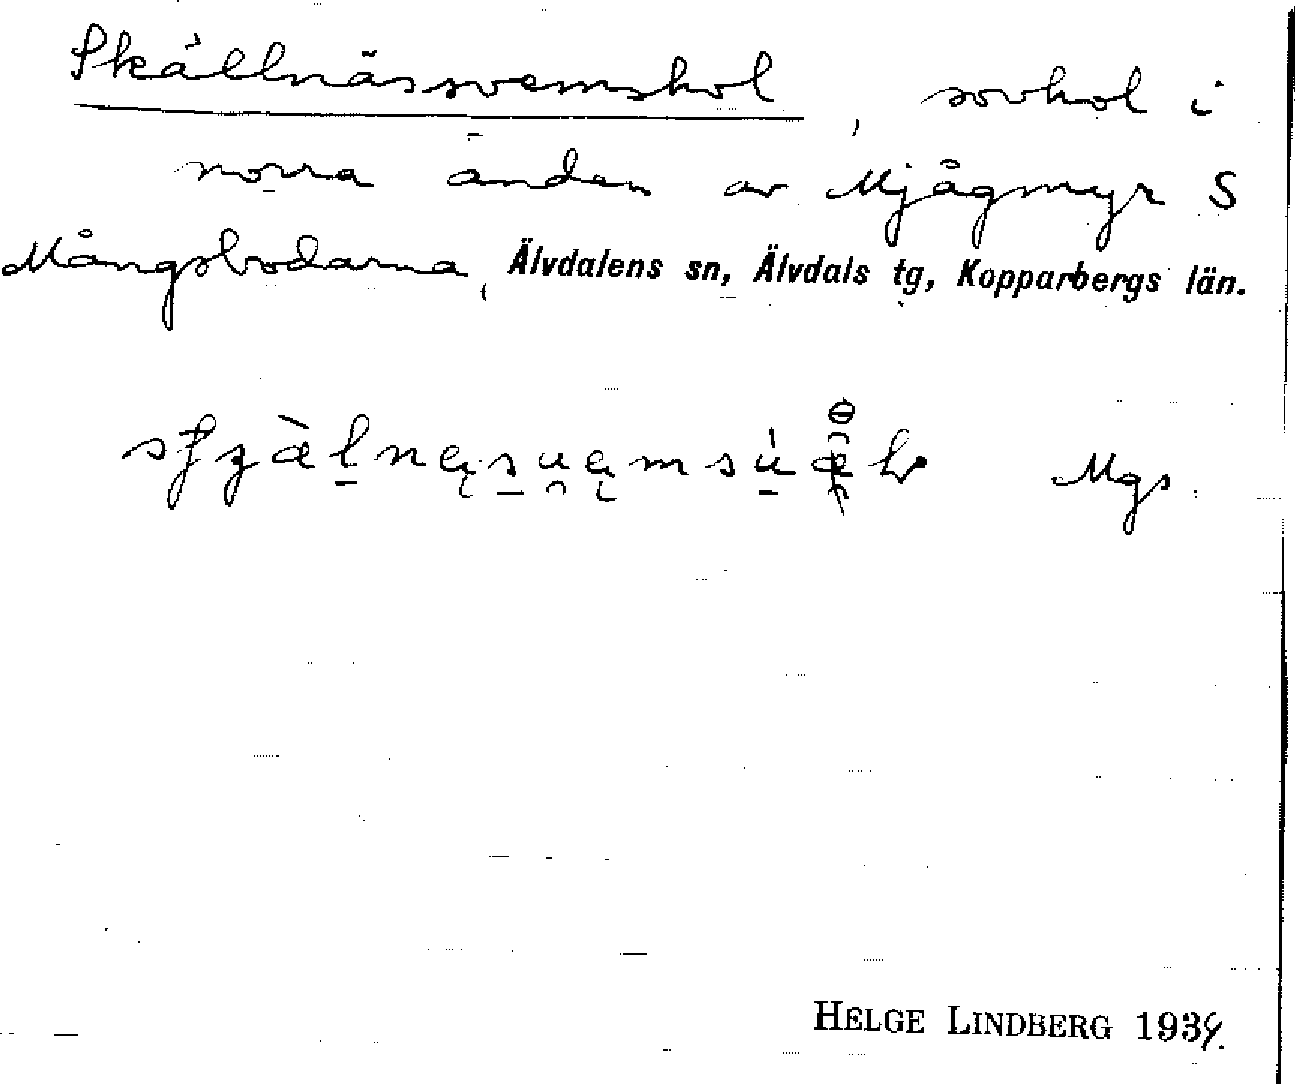 Skållnässvemskol, sovhol i
norra ändan av Mjågmyr S
Mångsbodarna, Älvdalens sn, Älvdals tg, Kopparbergs län.
Mgs.
HELGE LINDBERG 1939.